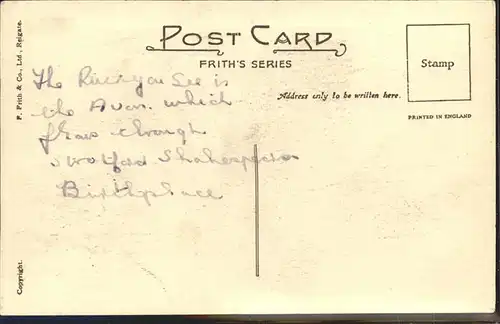 POST CARD
FRITH'S SERIES
Stamp
Address only to be written here.
PRINTED IN ENGLAND
F. Frith & Co., Ltd., Reigate.
Copyright.
The River you See is
the Avon. which
flows through
Stratford Shakespeares
Birthplace